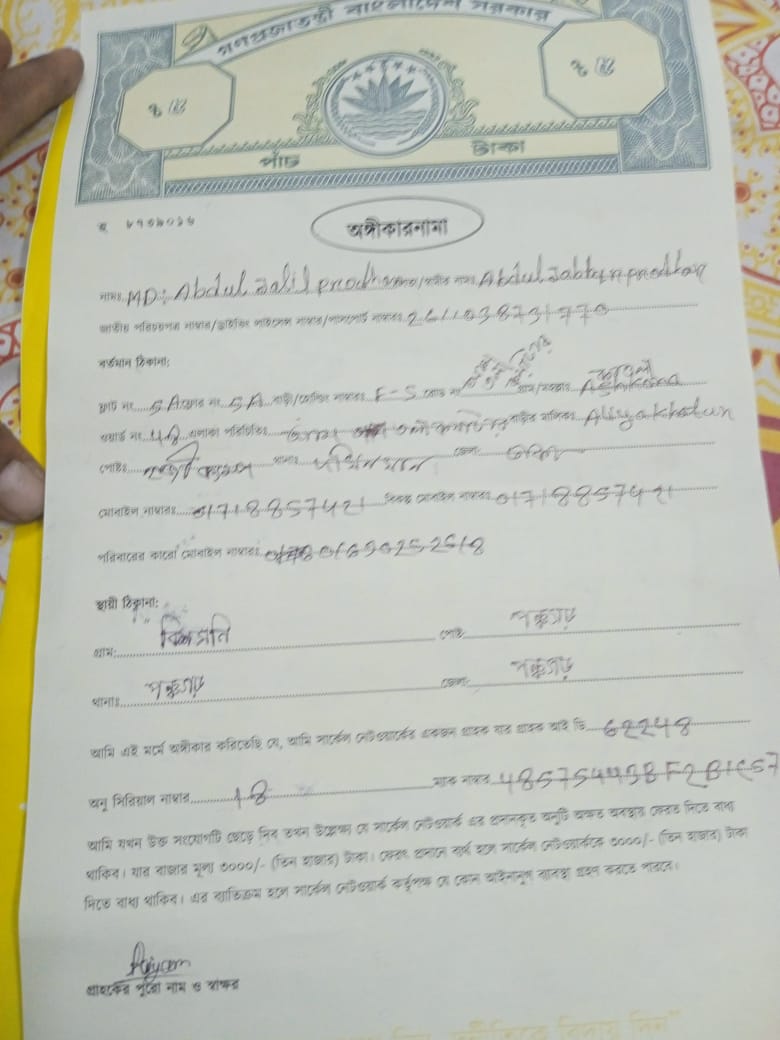 গণপ্রজাতন্ত্রী বাংলাদেশ সরকার
৳ ৫ ৳ ৫
পাঁচ টাকা
অঙ্গীকারনামা
নামঃ MD: Abdul Jalil prodhan নামঃ Abdul Jabbar prodhan
জাতীয় পরিচয়পত্র নাম্বার/ড্রাইভিং লাইসেন্স নাম্বার/পাসপোর্ট নাম্বারঃ
বর্তমান ঠিকানা:
ফ্লাট নং 5A ফ্লোর নং 5A বাড়ী/হোল্ডিং নাম্বারঃ F-5 রোড নং গ্রাম/মহল্লাঃ Ashkona
ওয়ার্ড নং এলাকা পরিচিতিঃ বাড়ীর মালিকঃ Aliya khatun
পোষ্টঃ থানাঃ দক্ষিনখান জেলাঃ ঢাকা
মোবাইল নাম্বারঃ 01718857421 বিকল্প মোবাইল নাম্বারঃ 01718857421
পরিবারের কারো মোবাইল নাম্বারঃ
স্থায়ী ঠিকানা:
গ্রাম: পোষ্ট: পঞ্চগড়
থানাঃ পঞ্চগড় জেলা: পঞ্চগড়
আমি এই মর্মে অঙ্গীকার করিতেছি যে, আমি সার্কেল নেটওয়ার্কের একজন গ্রাহক যার গ্রাহক আই ডি 62248
অনু সিরিয়াল নাম্বার 18 ম্যাক নাম্বার
আমি যখন উক্ত সংযোগটি ছেড়ে দিব তখন উল্লেক্ষ্য যে সার্কেল নেটওয়ার্ক এর প্রদানকৃত অনুটি অক্ষত অবস্থায় ফেরত দিতে বাধ্য
থাকিব। যার বাজার মূল্য ৩০০০/- (তিন হাজার) টাকা। ফেরৎ প্রদানে ব্যর্থ হলে সার্কেল নেটওয়ার্ককে ৩০০০/- (তিন হাজার) টাকা
দিতে বাধ্য থাকিব। এর ব্যতিক্রম হলে সার্কেল নেটওয়ার্ক কর্তৃপক্ষ যে কোন আইনানুগ ব্যবস্থা গ্রহণ করতে পারবে।
গ্রাহকের পুরো নাম ও স্বাক্ষর